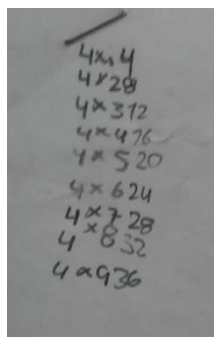 4x.4
4x28
4x312
4x416
4x520
4x624
4x728
4x832
4x936